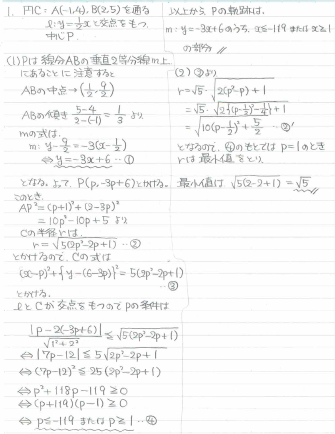 1. 円C:A(-1,4), B(2,5)を通る
l:y=1/2xと交点をもつ.
中心P.
(1) Pは線分ABの垂直2等分線m上
にあることに注意すると
ABの中点→(1/2, 9/2)
ABの傾き (5-4)/(2-(-1)) = 1/3 より
mの式は.
m:y-9/2=-3(x-1/2)
⇔ y=-3x+6 …①
となる. よって, P(p,-3p+6)とかける.
このとき.
AP²=(p+1)²+(2-3p)²
=10p²-10p+5 より
Cの半径rは.
r=√5(2p²-2p+1) …②
とかけるので, Cの式は
(x-p)²+{y-(6-3p)}²=5(2p²-2p+1)
…③
とかける.
lとCが交点をもつのでpの条件は
|p-2(-3p+6)|/√(1²+2²) ≦ √5(2p²-2p+1)
⇔ |7p-12| ≦ 5√2p²-2p+1
⇔ (7p-12)² ≦ 25(2p²-2p+1)
⇔ p²+118p-119≧0
⇔ (p+119)(p-1)≧0
⇔ p≦-119 または p≧1 …④
以上から Pの軌跡は.
m:y=-3x+6のうち, x≦-119 または x≧1
の部分
(2) ②より
r=√5・√2(p²-p)+1
=√5・√2{(p-1/2)²-1/4}+1
=√10(p-1/2)²+5/2 …②'
となるので, ④のもとでは p=1のとき
rは最小値をとり,
最小値は √5(2-2+1)=√5